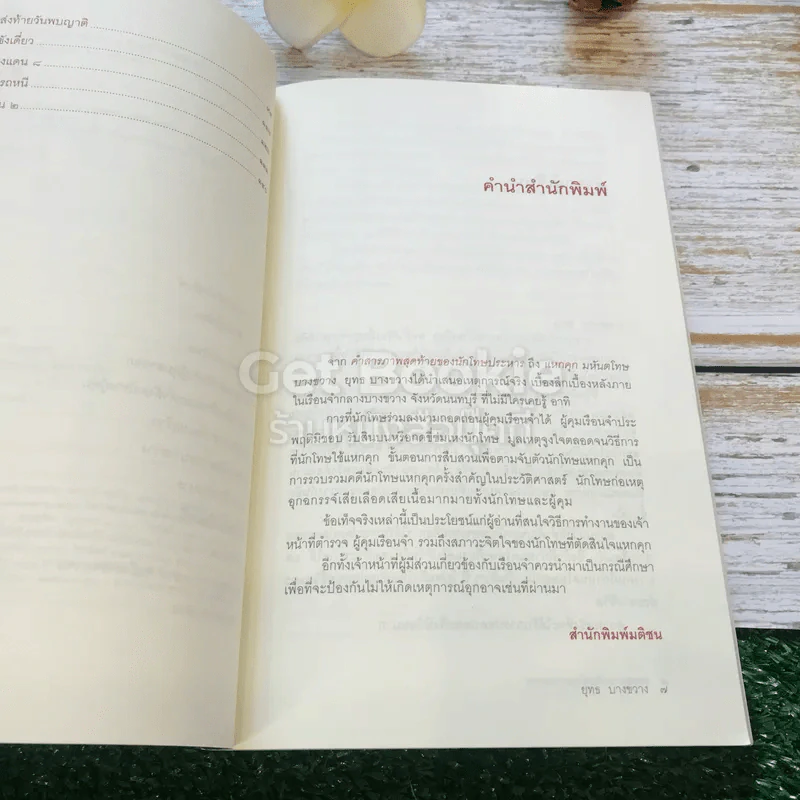 ส่งท้ายวันพบญาติ
ขังเดี่ยว
แดน ๘
รถหนี
๒
คำนำสำนักพิมพ์
จาก คำสารภาพสุดท้ายของนักโทษประหาร ถึง แหกคุก มหันตโทษ
บางขวาง ยุทธ บางขวางได้นำเสนอเหตุการณ์จริง เบื้องลึกเบื้องหลังภาย
ในเรือนจำกลางบางขวาง จังหวัดนนทบุรี ที่ไม่มีใครเคยรู้ อาทิ
การที่นักโทษร่วมลงนามถอดถอนผู้คุมเรือนจำได้ ผู้คุมเรือนจำประ
พฤติมิชอบ รับสินบนหรือกดขี่ข่มเหงนักโทษ มูลเหตุจูงใจตลอดจนวิธีการ
ที่นักโทษใช้แหกคุก ขั้นตอนการสืบสวนเพื่อตามจับตัวนักโทษแหกคุก เป็น
การรวบรวมคดีนักโทษแหกคุกครั้งสำคัญในประวัติศาสตร์ นักโทษก่อเหตุ
อุกฉกรรจ์เสียเลือดเสียเนื้อมากมายทั้งนักโทษและผู้คุม
ข้อเท็จจริงเหล่านี้เป็นประโยชน์แก่ผู้อ่านที่สนใจวิธีการทำงานของเจ้า
หน้าที่ตำรวจ ผู้คุมเรือนจำ รวมถึงสภาวะจิตใจของนักโทษที่ตัดสินใจแหกคุก
อีกทั้งเจ้าหน้าที่ผู้มีส่วนเกี่ยวข้องกับเรือนจำควรนำมาเป็นกรณีศึกษา
เพื่อที่จะป้องกันไม่ให้เกิดเหตุการณ์อุกอาจเช่นที่ผ่านมา
สำนักพิมพ์มติชน
ยุทธ บางขวาง ๗